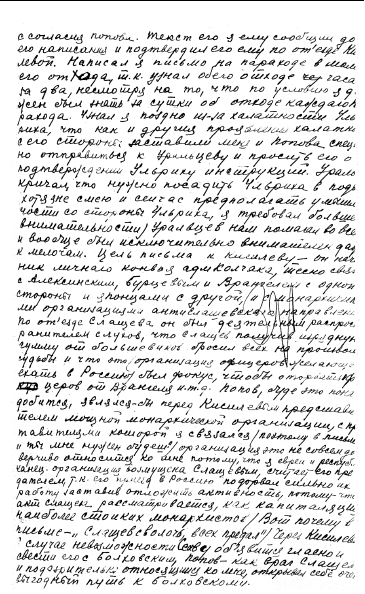 с согласия Попова. Текст его я ему сообщил до
его написания и подтвердил его ему по от'езде Ки
левой. Написал я письмо на пароходе в мом
его отхода, т.к. узнал об его отходе чер часа
за два, несмотря на то, что по условию я д.
жен был знать за сутки об отходе каждого па
рахода. Узнал я поздно из-за халатности Уль
риха, что как и другие проявления халатн
с его стороны заставили меня и Попова спец
но отправиться к Уральцеву и просить его о
подтверждении Ульриху инструкций. Урале
кричал, что нужно посадить Ульриха в подв
хотя не смею и сейчас предполагать умыш
ности со стороны Ульриха, я требовал больше
внимательности/ Уральцев нам помогал во все
и вообще был исключительно внимателен даж
к мелочам. Цель письма к Киселеву - он нач
ник личного конвоя адм Колчака, тесно связ
с Алексинским, Бурцевым и Врангелем с одной
стороны и японцами с другой,
ми организациями антислащевского направлени
по от'езде Слащева он был деятельным распрос
ранителем слухов, что Слащев получив изрядную
сумму от большевиков бросил всех на произвол
судьбы и что это, организация офицеров, желающих
ехать в Россию был фокус, чтобы оторвать
церов от Врангеля и т.д. Попов,
добится, являлся-бы перед Киселевым представи
телем мощной монархической организации, с пр
тавителями которой я связался/ поэтому в письм
и "ты мне нужен будешь", организация это не совсем до
верчиво относится ко мне потому, что я еврей и республ
канец. организация возмущена Слащевым, считает его пред
дателем, т.к. его приезд в Россию подорвал сильно их
работу, заставив отложить активность, потому-что
акт Слащева рассматривается, как капитуляция
наиболее стойких монархистов/ Вот почему в
письме -"Слащев сволочь, всех предал". Через Киселева
случае невозможности об'явится гласно и
свести его с Волковским, Попов- как враг Слащева
и подозрительно относящийся ко мне, открывал себе очень
выгодный путь к Волковскому.